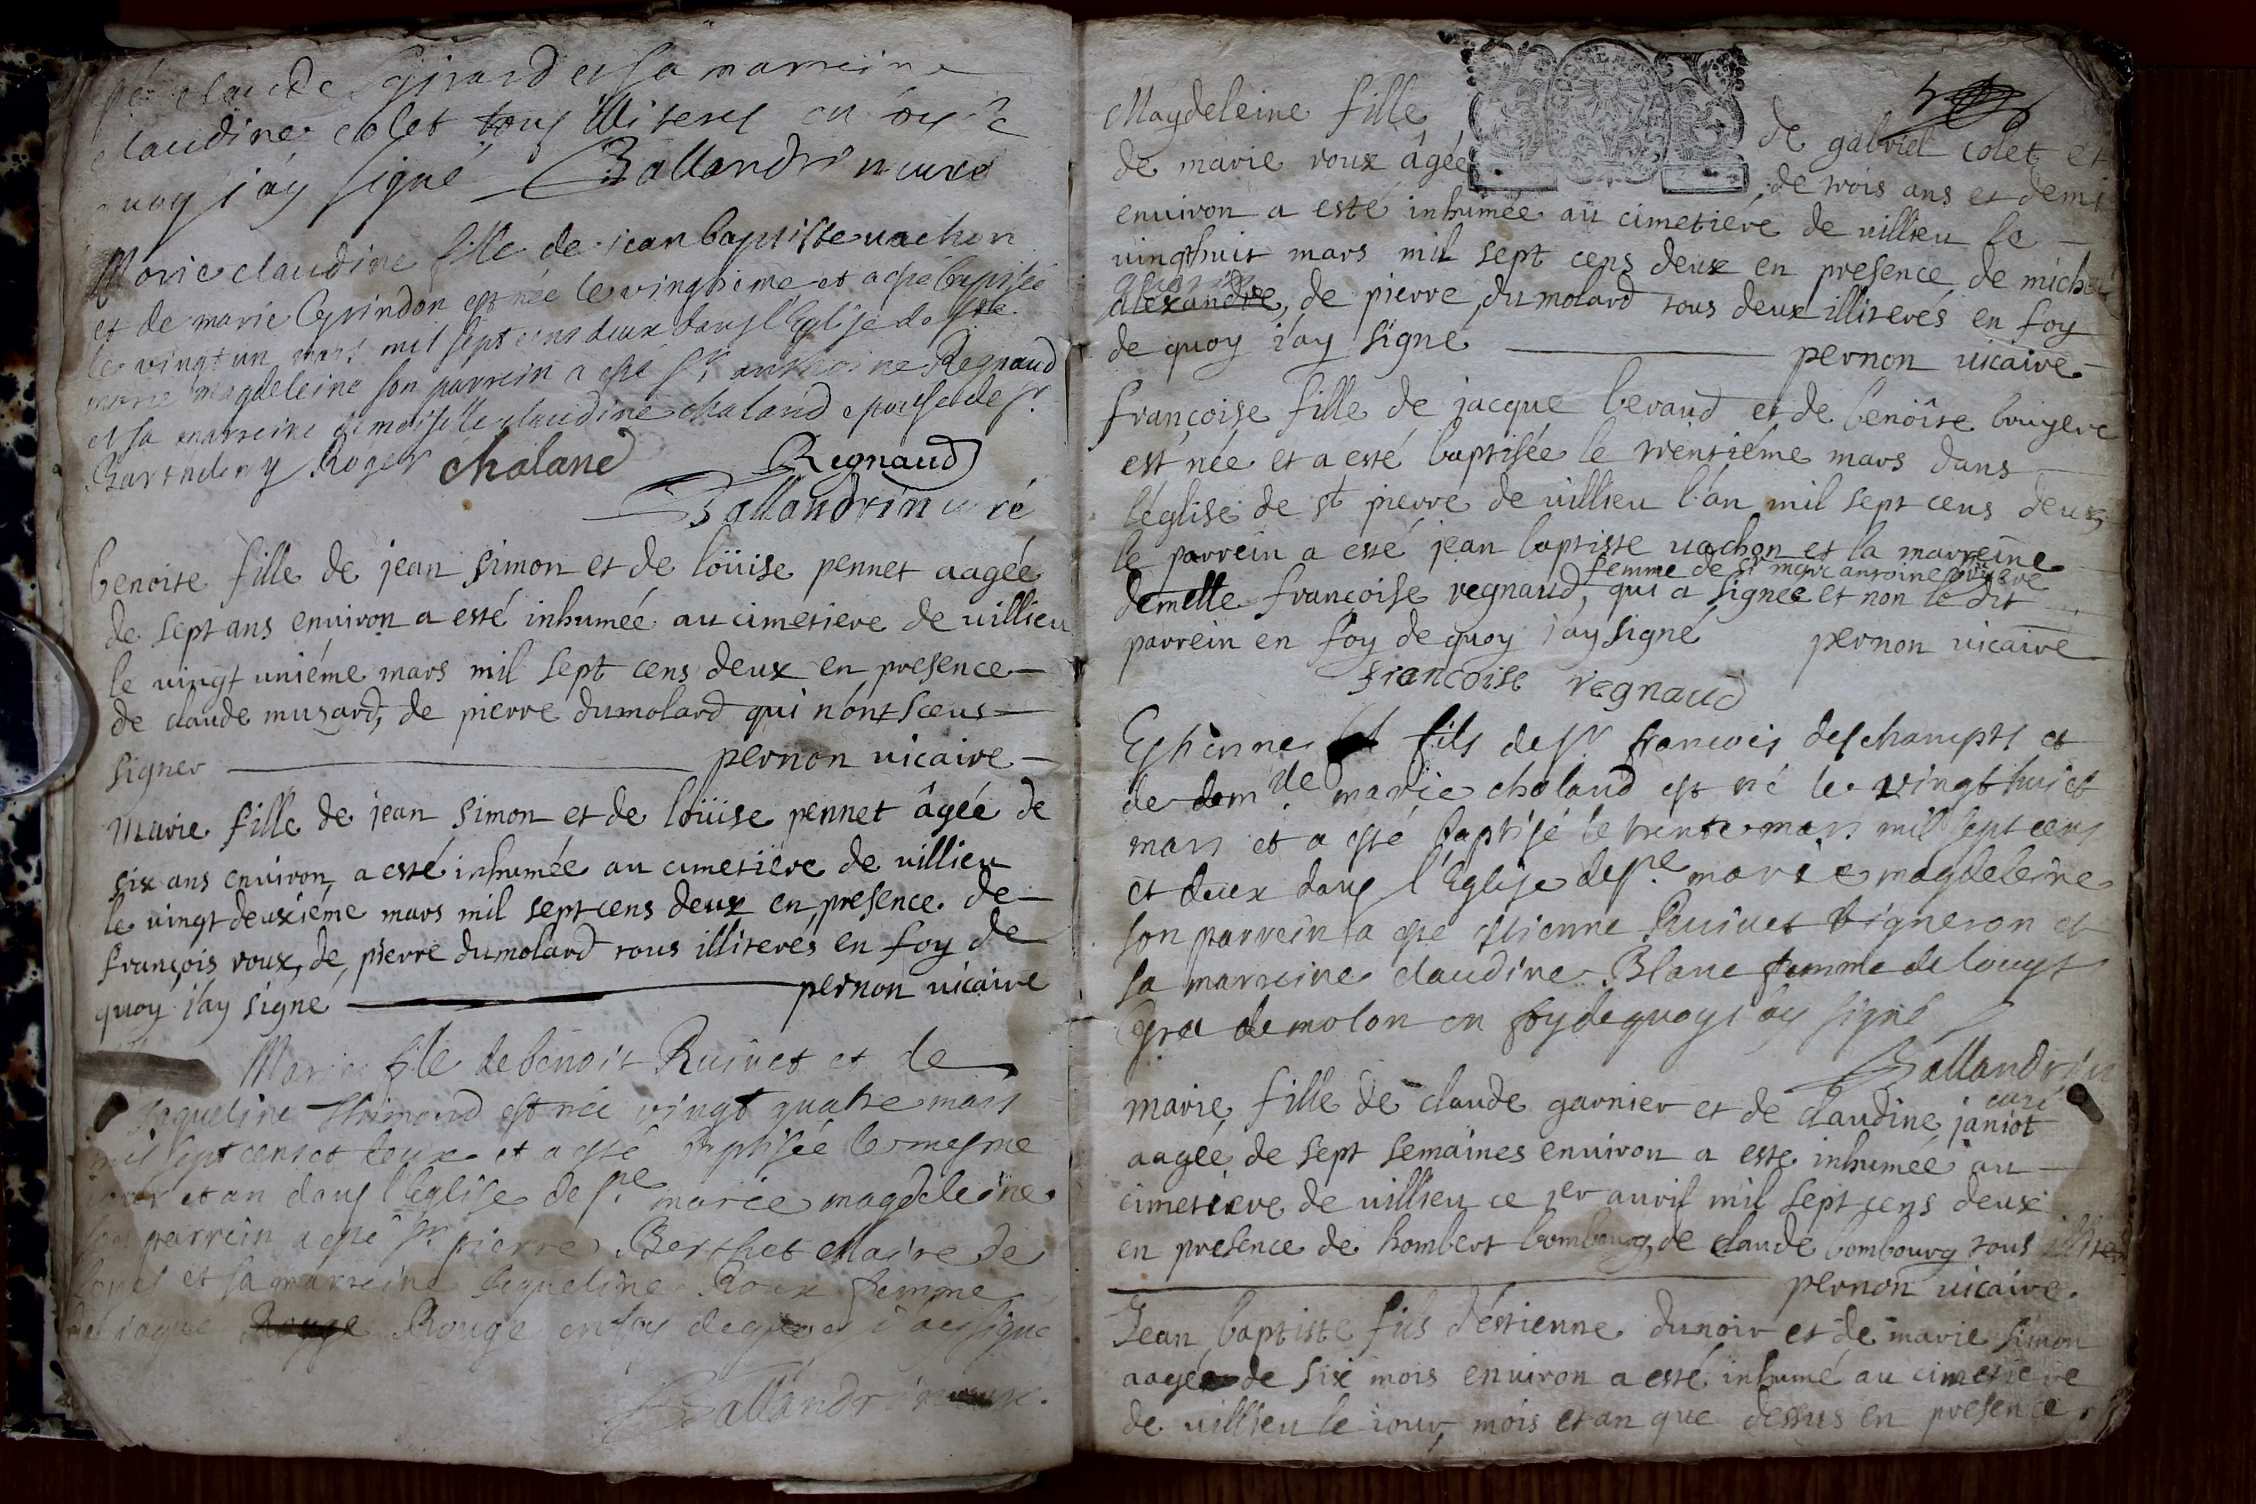 claude Girard et sa marreine
claudine colet tous illiterés en foy de
quoy j'ay signé Ballandrin curé
Marie claudine fille de jean baptiste vachon
et de marie Grindon est née le vingtieme et a esté baptisée
le vingt un mars mil sept cens deux dans l'Eglise de ste
marie magdeleine son parrein a esté sr anthoine Regnaud
et sa marreine demoiselle claudine chaland epouse de sr
Barthelemy Roger chaland Regnaud
Ballandrin curé
benoite fille de jean simon et de loüise pennet aagée
de sept ans environ a esté inhumée au cimetiere de villieu
le vingt uniéme mars mil sept cens deux en presence
de claude musard, de pierre dumolard qui n'ont sceus
signer pernon vicaire
Marie fille de jean simon et de loüise pennet âgée de
six ans environ a esté inhumée au cimetiére de villieu
le vingt deuxiéme mars mil sept cens deux en presence de
françois roux, de pierre dumolard tous illiterés en foy de
quoy j'ay signé pernon vicaire
Marie fille de benoit Ruivet et de
Jaqueline est née vingt quatre mars
mil sept cens et deux et a esté baptisée le mesme
jour et an dans l'Eglise de ste marie magdeleine
son parrein a esté sr pierre Berthet Maire de
et sa marreine Jaqueline Roux femme
de jaque Rouge en foy de quoy j'ay signé
Ballandrin curé
Magdeleine fille de gabriel colet et
de marie roux âgée de trois ans et demi
environ a esté inhumée au cimetiére de villieu le
vingthuit mars mil sept cens deux en presence de michel
alexandre, de pierre dumolard tous deux illiterés en foy
de quoy j'ay signé pernon vicaire
françoise fille de jacque beraud et de benoîte bruyere
est née et a esté baptisée le trentiéme mars dans
l'église de st pierre de villieu l'an mil sept cens deux
le parrein a esté jean baptiste vachon et la marreine
femme de sr marc antoine
demelle françoise regnaud, qui a signée et non le dit
parrein en foy de quoy j'ay signé pernon vicaire
françoise regnaud
Estienne fils de sr francois deschamps et
de demlle marie chaland est né le vingt huict
mars et a esté baptisé le trente mars mil sept cens
et deux dans l'Eglise de ste marie magdeleine
son parrein a esté estienne Ruivet vigneron et
sa marreine claudine Blanc femme de louys
Gra de molon en foy de quoy j'ay signé
Ballandrin
curé
marie fille de claude garnier et de claudine janiot
aagée de sept semaines environ a esté inhumée au
cimetiere de villieu ce 1er avril mil sept cens deux
en presence de hombert bombourg, de claude bombourg tous
pernon vicaire.
Jean baptiste fils d'estienne dunoir et de marie simon
aagé de six mois environ a esté inhumé au cimetiere
de villieu le jour, mois et an que dessus en presence